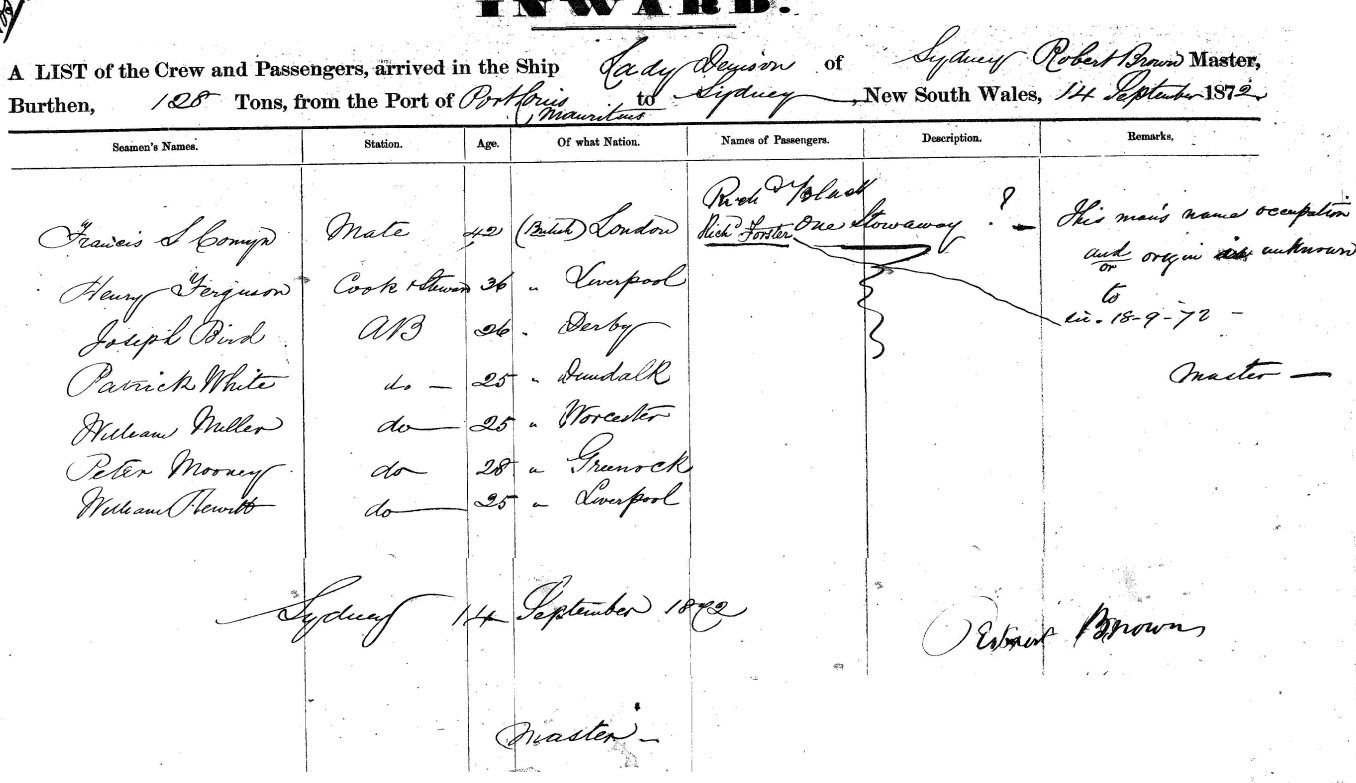 INWARD.
A LIST of the Crew and Passengers, arrived in the Ship Lady Denison of Sydney Robert Brown Master,
Burthen, 128 Tons, from the Port of Port Louis Mauritius to Sydney, New South Wales, 14 September 1872
Seamen's Names. Station. Age. Of what Nation. Names of Passengers. Description. Remarks.
Richd Black
Francis S Comyn Mate 42 (British) London Richd Forster One Stowaway ? — This man's name occupation
and/or origin unknown
Henry Ferguson Cook & Steward 36 " Liverpool to
Joseph Bird AB 26 " Derby 18-9-72 —
Patrick White do — 25 " Dundalk Master —
William Miller do 25 " Worcester
Peter Mooney do 28 " Greenock
William Hewitt do 25 " Liverpool
Sydney 14 September 1872 Robert Brown
Master —